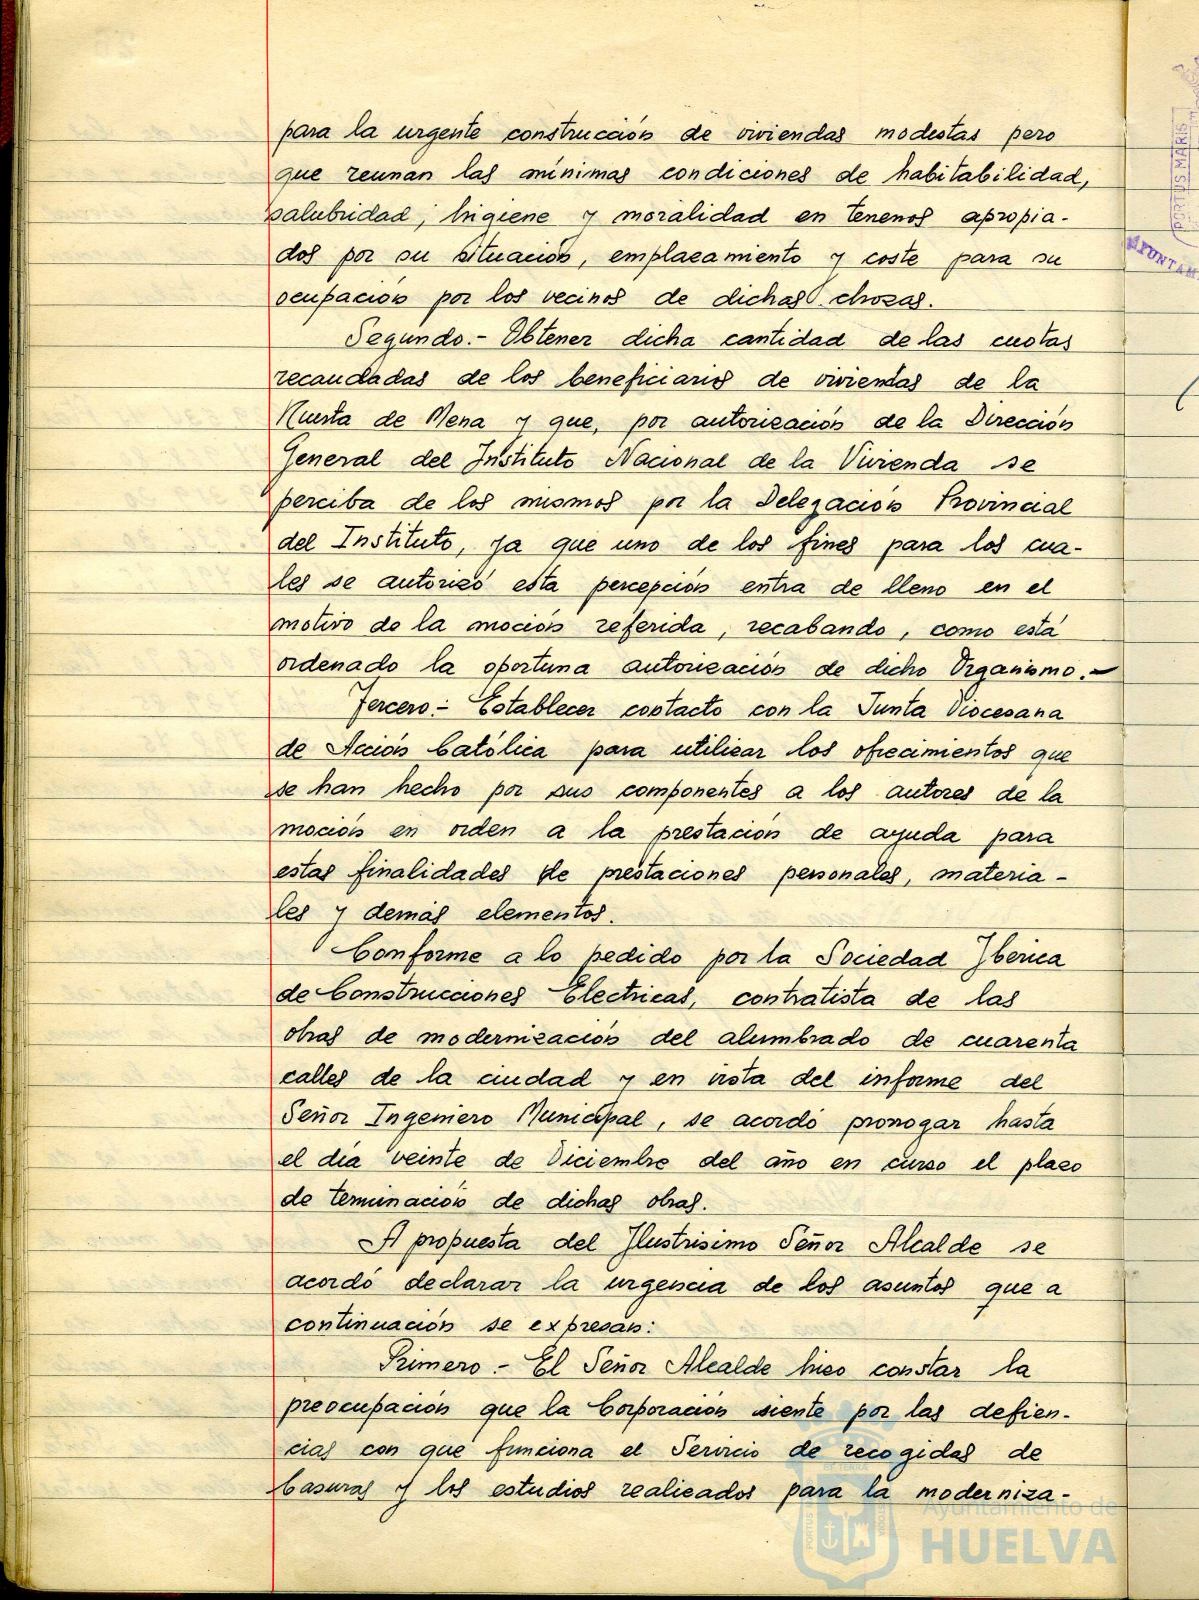 para la urgente construcción de viviendas modestas pero
que reunan las mínimas condiciones de habitabilidad,
salubridad, higiene y moralidad en terrenos apropia-
dos por su situación, emplazamiento y coste para su
ocupación por los vecinos de dichas chozas.
Segundo.- Obtener dicha cantidad de las cuotas
recaudadas de los beneficiarios de viviendas de la
Huerta de Mena y que, por autorización de la Dirección
General del Instituto Nacional de la Vivienda se
perciba de los mismos por la Delegación Provincial
del Instituto, ya que uno de los fines para los cua-
les se autorizó esta percepción entra de lleno en el
motivo de la moción referida, recabando, como está
ordenado la oportuna autorización de dicho Organismo.-
Tercero.- Establecer contacto con la Junta Diocesana
de Acción Católica para utilizar los ofrecimientos que
se han hecho por sus componentes a los autores de la
moción en orden a la prestación de ayuda para
estas finalidades de prestaciones personales, materia-
les y demás elementos.
Conforme a lo pedido por la Sociedad Iberica
de Construcciones Electricas, contratista de las
obras de modernización del alumbrado de cuarenta
calles de la ciudad y en vista del informe del
Señor Ingeniero Municipal, se acordó prorrogar hasta
el día veinte de Diciembre del año en curso el plazo
de terminación de dichas obras.
A propuesta del Ilustrisimo Señor Alcalde se
acordó declarar la urgencia de los asuntos que a
continuación se expresan:
Primero.- El Señor Alcalde hizo constar la
preocupación que la Corporación siente por las defien-
cias con que funciona el Servicio de recogidas de
basuras y los estudios realizados para la moderniza-
Ayuntamiento de
HUELVA
PORTUS MARIS
AYUNTAM